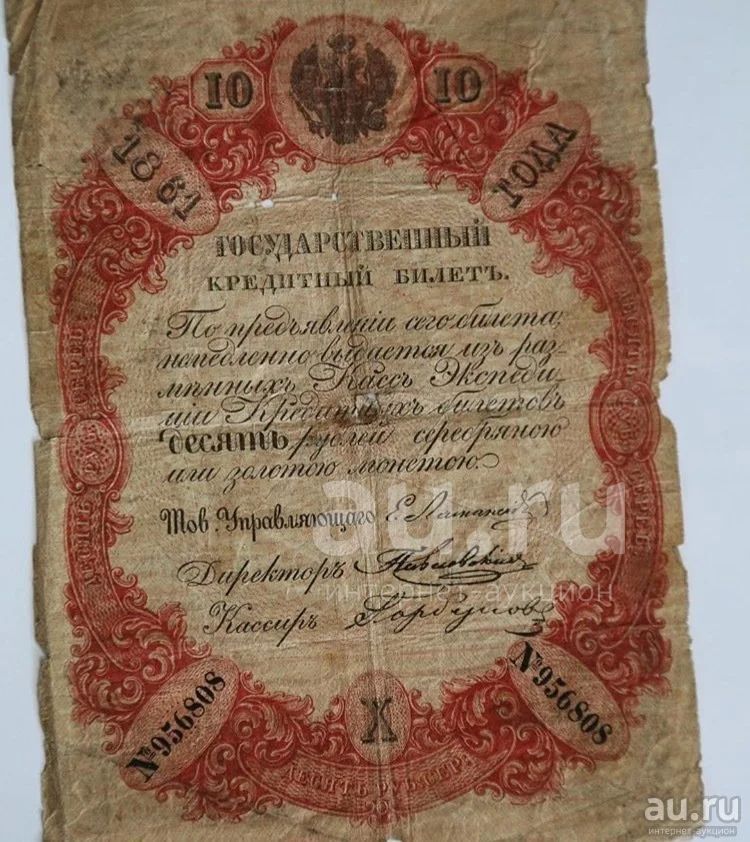 10 10
1861 ГОДА
ГОСУДАРСТВЕННЫЙ
КРЕДИТНЫЙ БИЛЕТЪ.
По предъявленіи сего билета,
немедленно выдается изъ раз-
мѣнныхъ Кассъ Экспеди-
ціи Кредитныхъ билетовъ
десять рублей серебряною
или золотою монетою.
Тов. Управляющаго Е. Ламанскій
Директоръ
Кассиръ
ДЕСЯТЬ РУБ: СЕРЕБ:
ДЕСЯТЬ РУБ: СЕРЕБ:
№956808 №956808
X
ДЕСЯТЬ РУБ: СЕР:
au.ru
интернет-аукцион
au.ru
интернет-аукцион
au.ru
интернет-аукцион